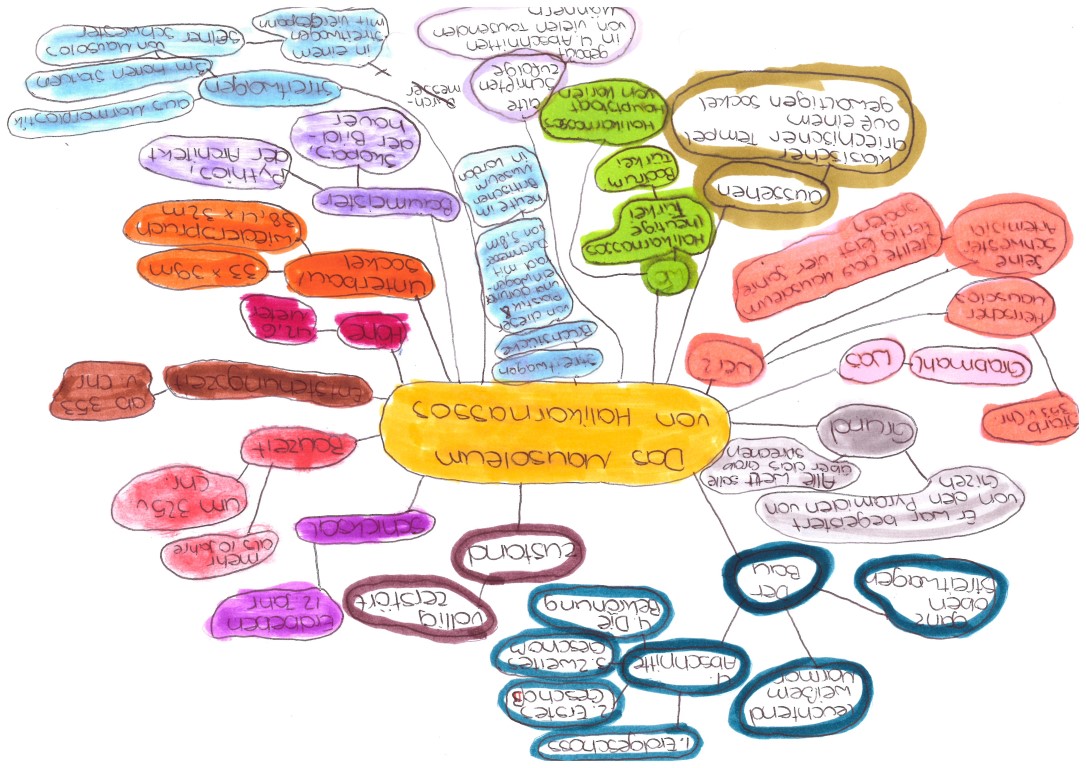 Das Mausoleum
von Halikarnassos
Der
Bau
ganz
oben
Streitwagen
leuchtend
weißem
Marmor
4.
Abschnitte
1. Erdgeschoss
2. Erstes
Geschoß
3. Zweites
Geschoß
4. Die
Bekrönung
Zustand
völlig
zerstört
Schicksal
Erdbeben
12. Jahr
Bauzeit
mehr
als 10 Jahre
um 325 v
chr.
Entstehungszeit
ab 353
v. chr
Höhe
42,10
Meter
Unterbau
Sockel
33 x 39m
Wiederspruch
38,4 x 32m
Baumeister
Pythios,
der Architekt
Skopas,
der Bild-
hauer
Streitwagen
aus Marmorplastik
3m hohen Statuen
von Mausolos
seiner Schwester
in einem
Streitwagen
mit Viergespann
Streitwagen
Bruchstücke
von dieser
Plastik &
und dortune
einwagen-
rad mit
Durchmesse
von 3,8m
heute in
Britischen
Museum
in London
Durch-
messer
alte
Schriften
zufolge
gebaut
in 4. Abschnitten
von vielen Tausenden
Männern
Wo
Halikarnassos
(heutige
Türkei
Bodrum
Türkei
Halikarnassos
Hauptstadt
von Karien
aussehen
klasischer
griechischer Tempel
auf einem
gewaltigen Sockel
Wer?
seine
Schwester
Artemisia
lernte das Mausoleum
fertig erst vier Jahre
später
Herrscher
Mausolos
starb
353 v. Chr
Was
Grabmahl
Grund
Alle Welt solle
über das Grab
sprechen
Er war begeistert
von den Pyramiden von
Gizeh